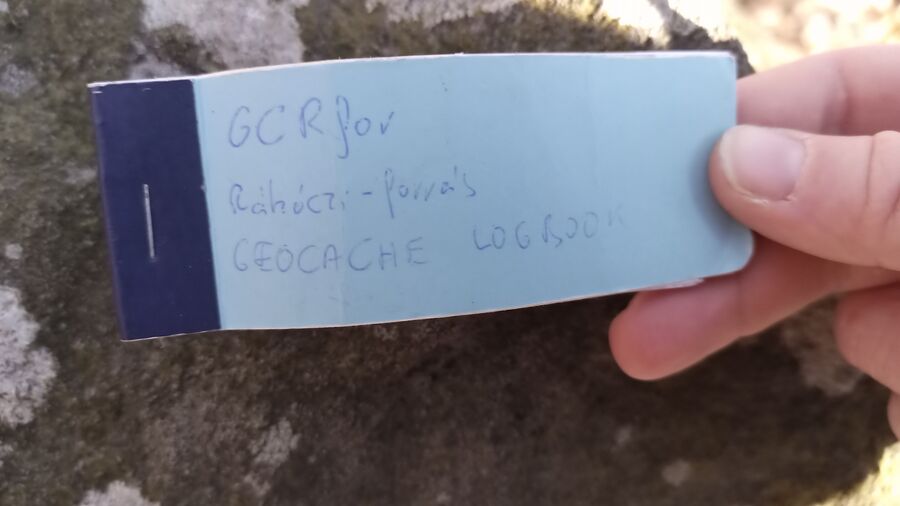 GCRfor
Rákóczi-forrás
GEOCACHE LOGBOOK